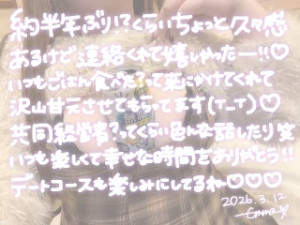 約半年ぶりてくらいちょっと久々感
あるけど連絡くれて嬉しかったー!!♡
いつもごはん食べた?って気にかけてくれて
沢山甘えさせてもらってます(T_T)♡
共同経営者?ってくらい色んな話したり笑
いつも楽しくて幸せな時間をありがとう!!
デートコースも楽しみにしてるね♡♡♡
2026.3.12